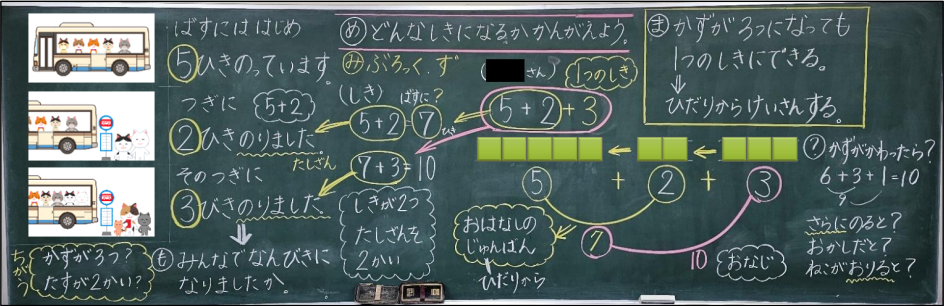 ばすにははじめ
5ひきのっています。
つぎに 5+2
2ひきのりました。
たしざん
そのつぎに
3びきのりました。
ちがう
かずが3つ?
たすが2かい?
も みんなでなんびきに
なりましたか。
め どんなしきになるかかんがえよう。
み ぶろっく.ず
(しき) ばすに?
5+2=7ひき
7+3=10
しきが2つ
たしざんを
2かい
( さん) 1つのしき
5+2+3
5 + 2 + 3
7
10
おなじ
おはなしの
じゅんばん
ひだりから
ま かずが3つになっても
1つのしきにできる。
ひだりからけいさんする。
? かずがかわったら?
6+3+1=10
9
さらにのると?
おかしだと?
ねこがおりると?